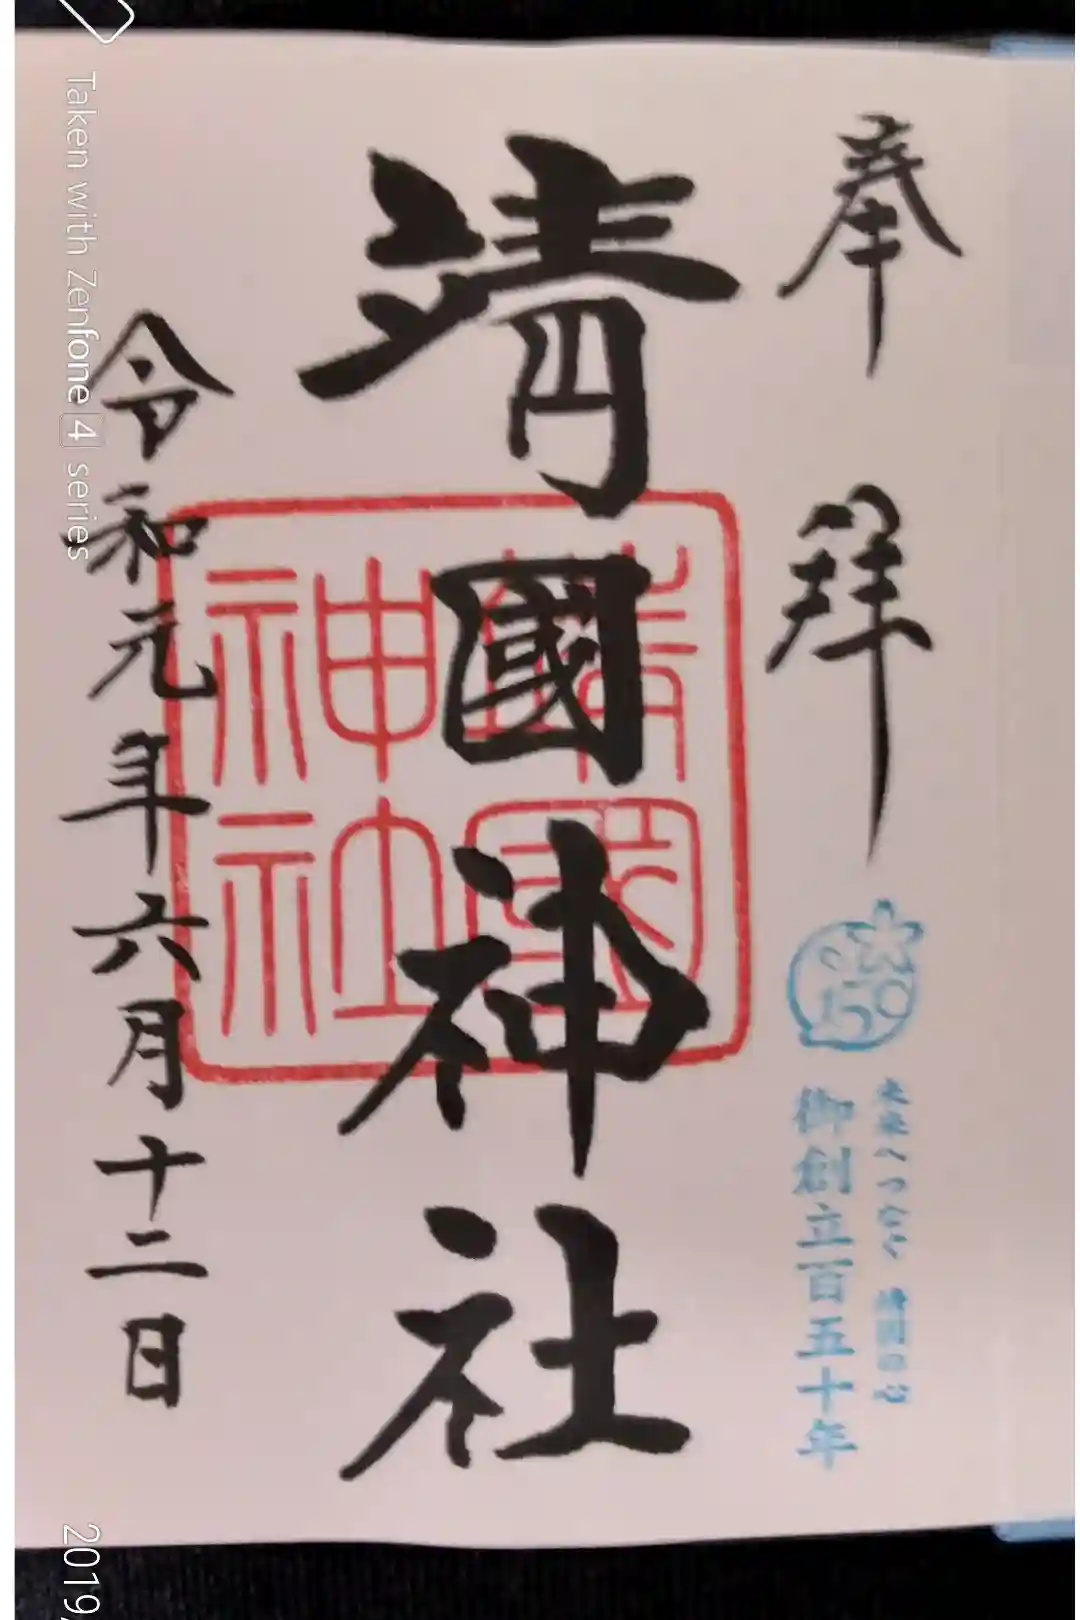 奉拝
150
未来へつなぐ 靖国の心
御創立百五十年
靖國神社
靖國神社
令和元年六月十二日
Taken with Zenfone 4 series
2019